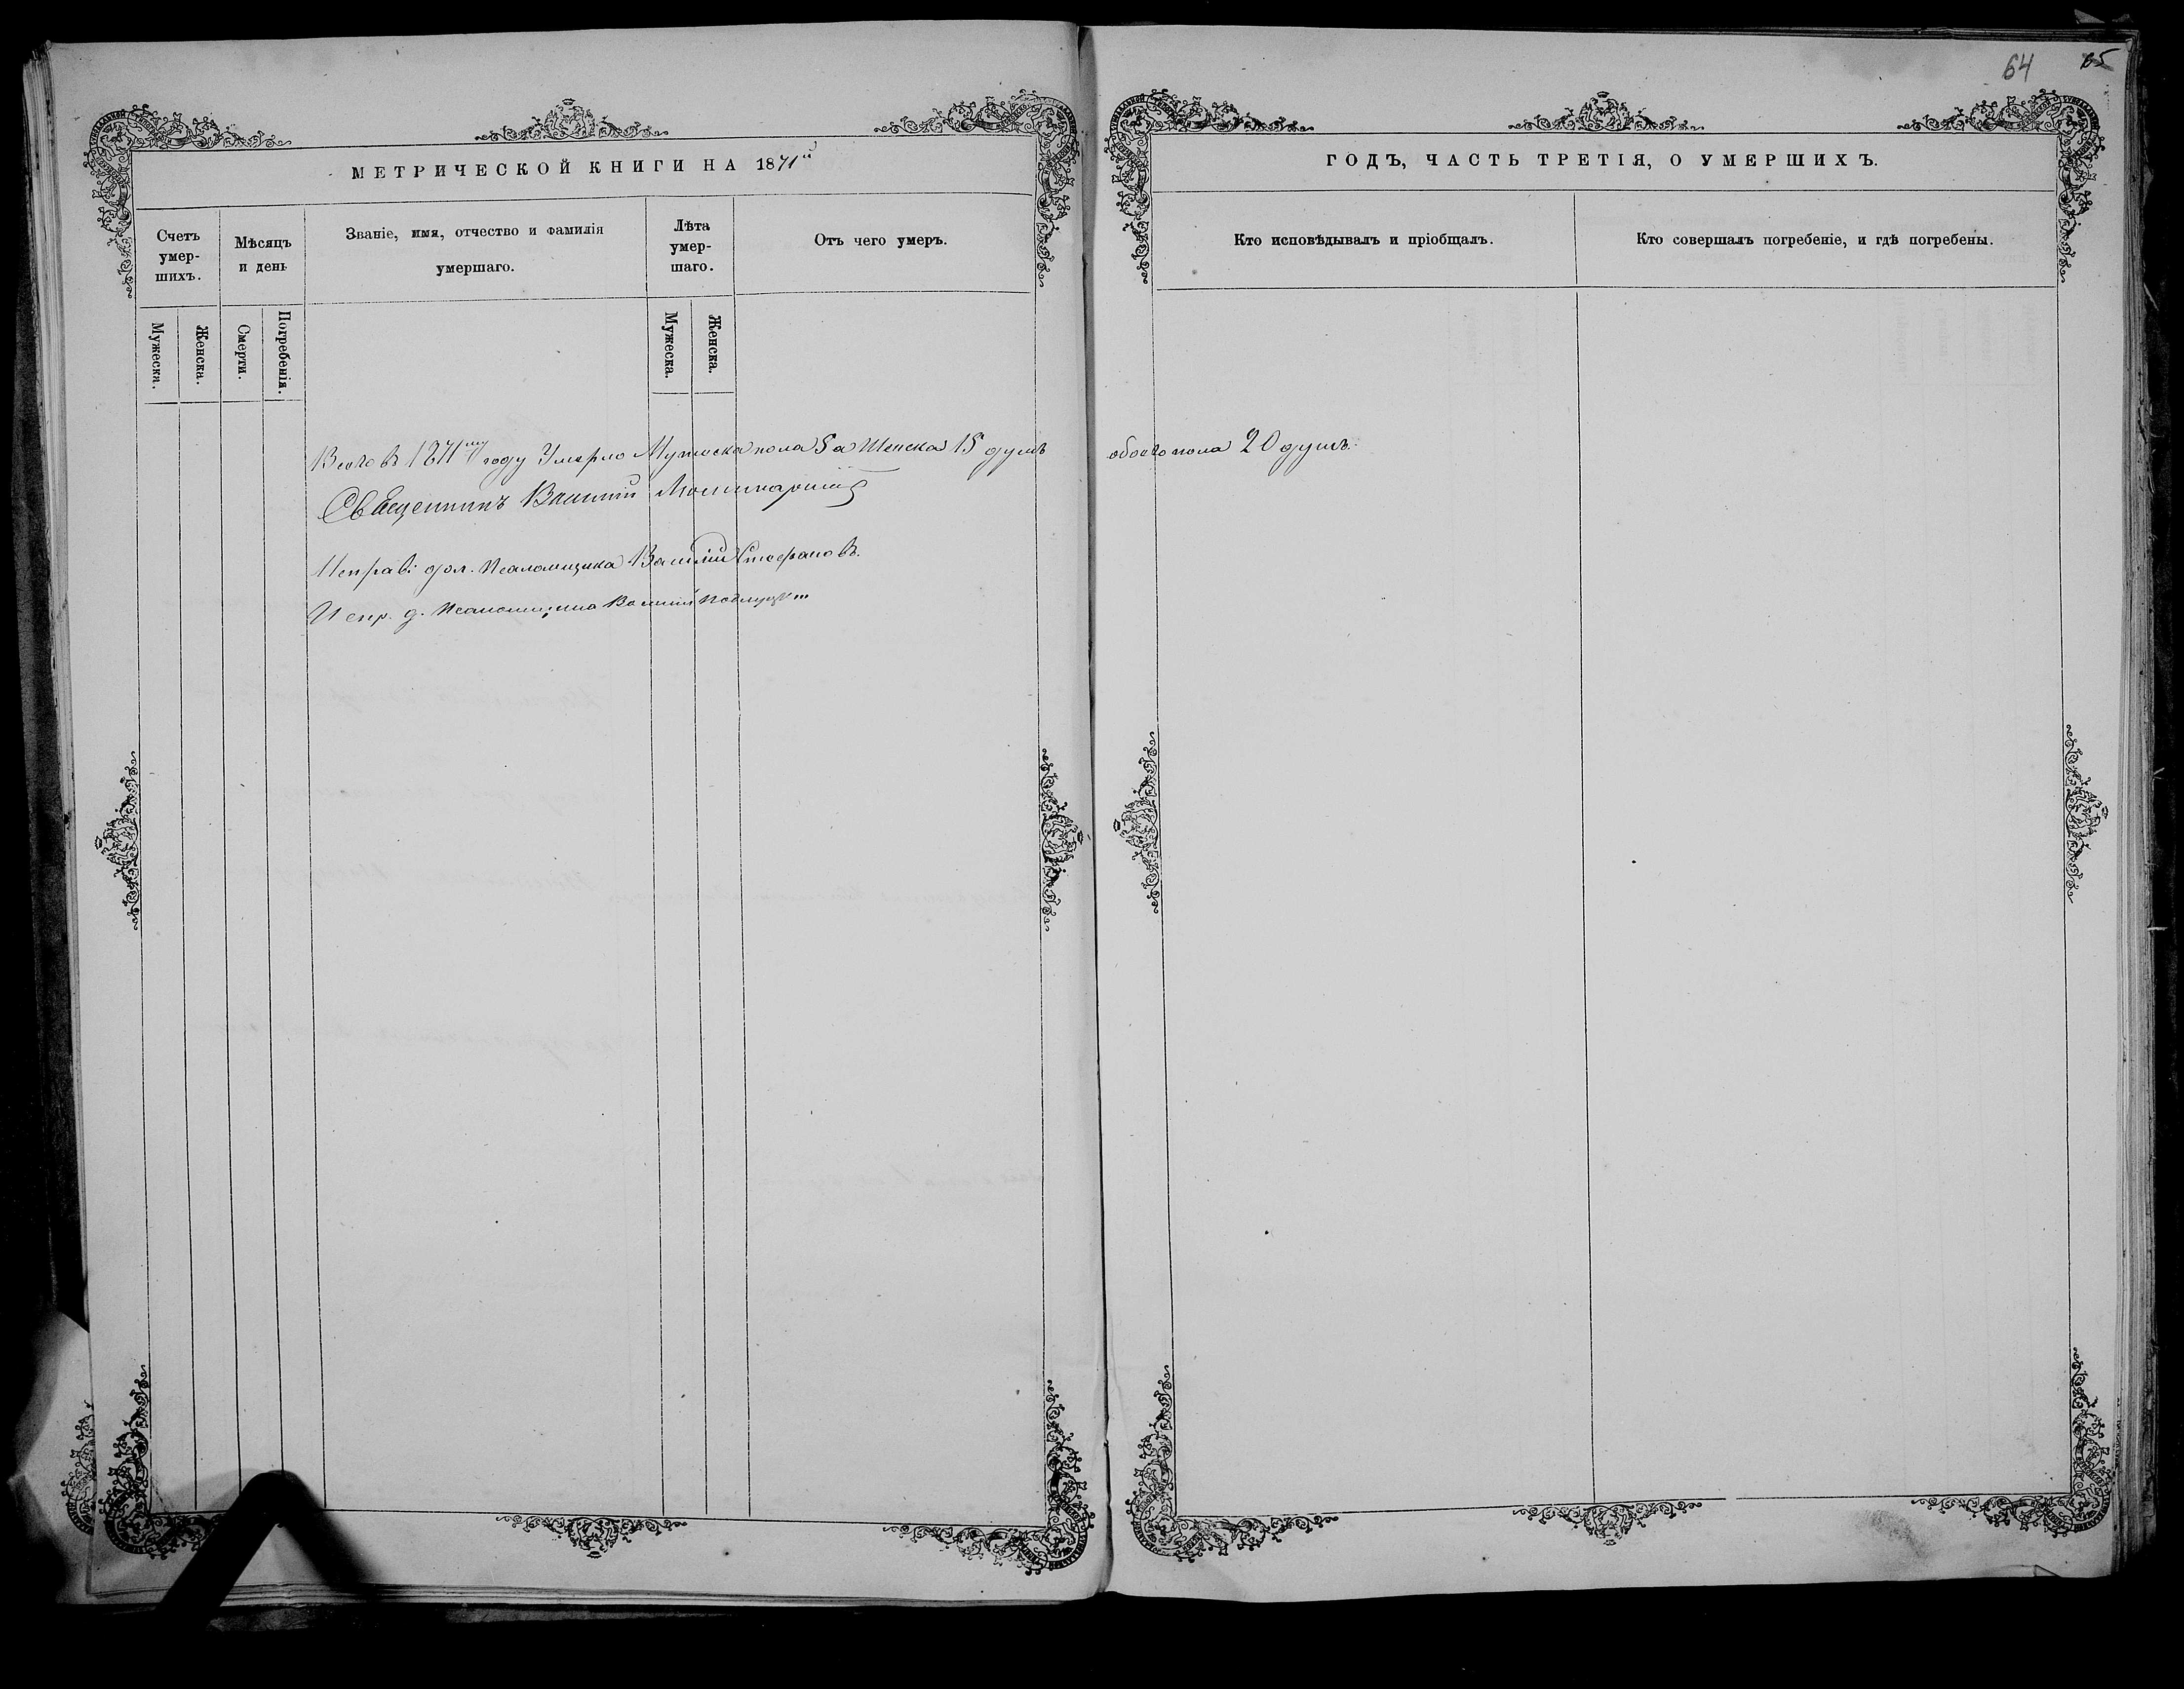 64 65
МЕТРИЧЕСКОЙ КНИГИ НА 1871й
Счетъ
умер-
шихъ.
Мѣсяцъ
и день
Званіе, имя, отчество и фамилія
умершаго.
Лѣта
умер-
шаго.
Отъ чего умеръ.
Мужеска.
Женска.
Смерти.
Погребенія.
Мужеска.
Женска.
Всего въ 1871му году Умерло Мужеска пола 5 а Женска 15 душъ
Священникъ Василій
Исправ: дол. Псаломщика Василій Стефановъ.
Испр. д. Псаломщика Василій
ГОДЪ, ЧАСТЬ ТРЕТІЯ, О УМЕРШИХЪ.
Кто исповѣдывалъ и пріобщалъ.
Кто совершалъ погребеніе, и гдѣ погребены.
обоего пола 20 душъ.